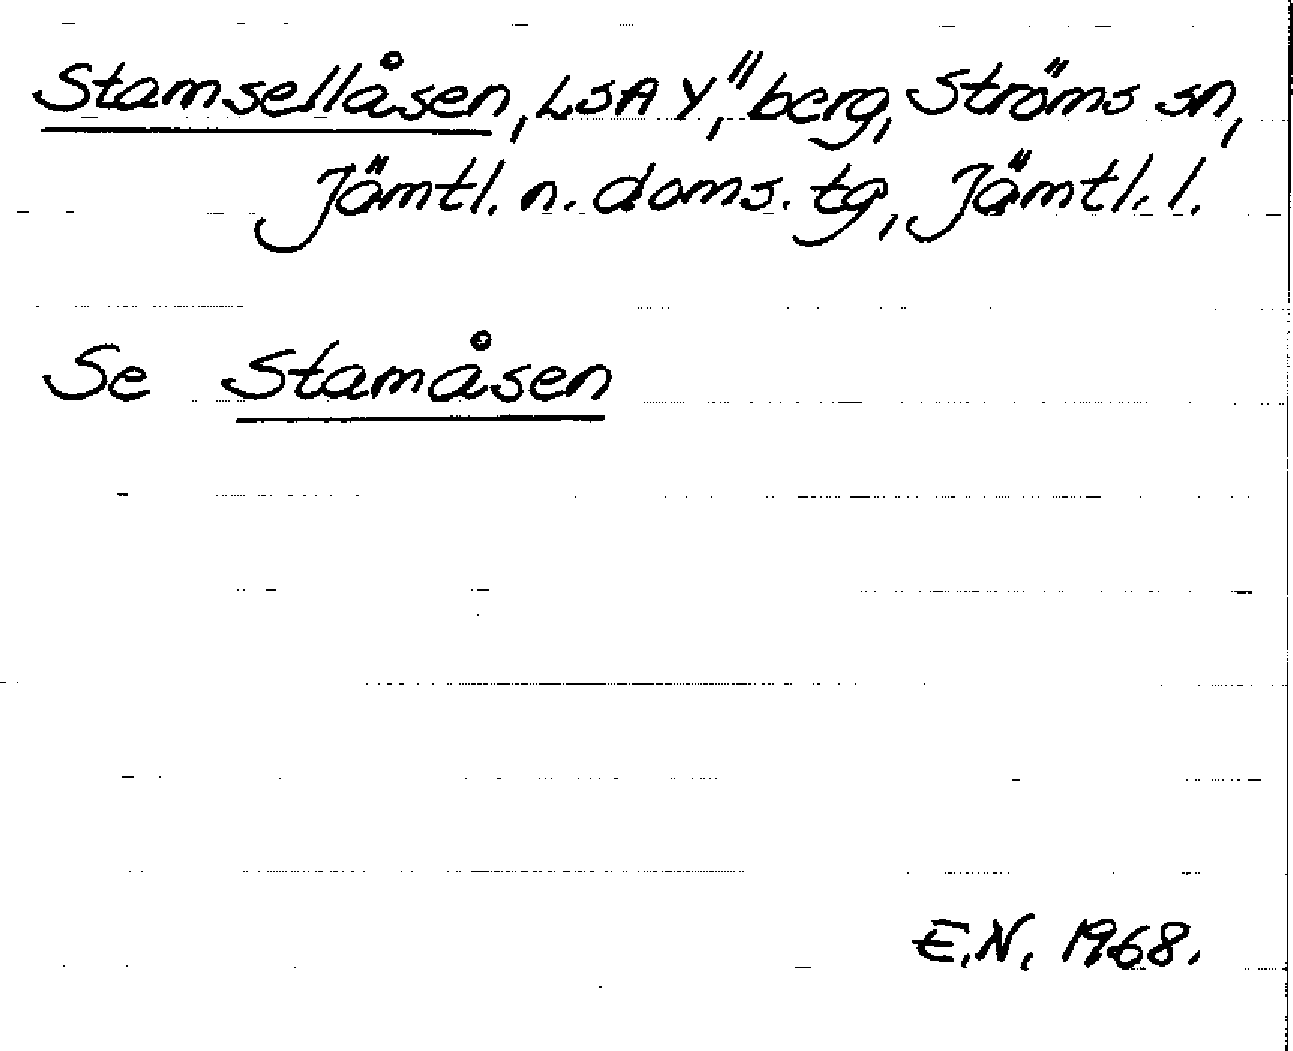 Stamsellåsen, LSA Y," berg, Ströms sn,
Jämtl. n. doms. tg, Jämtl. l.
Se Stamåsen
E.N. 1968.